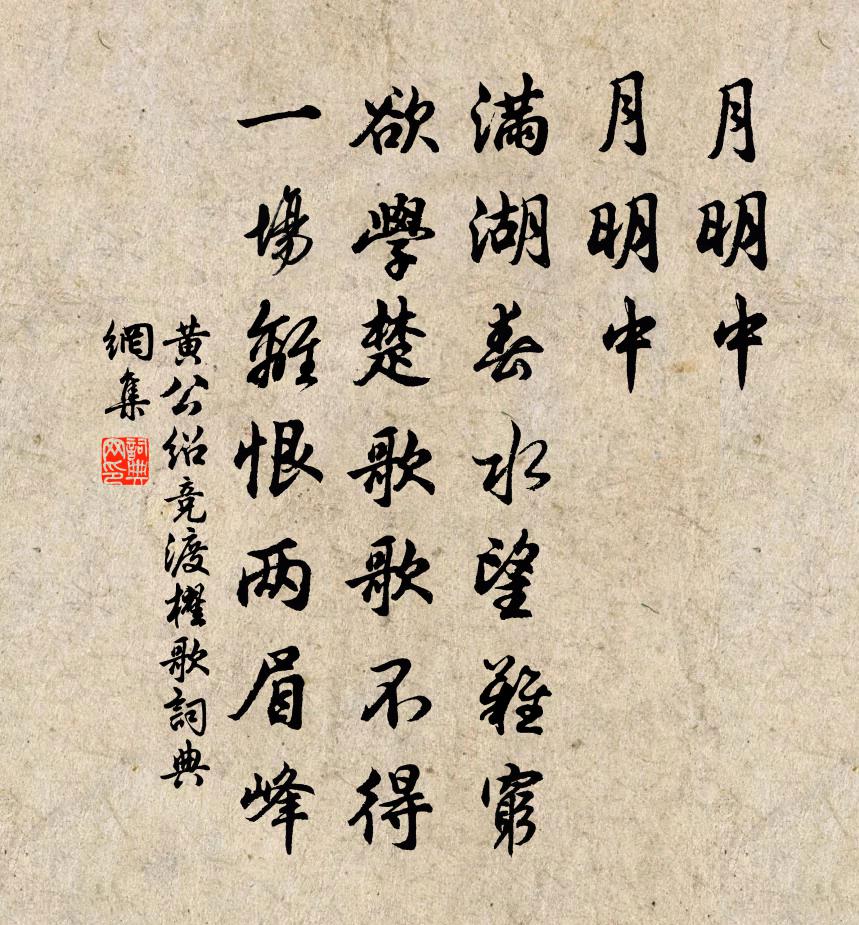 月明中
月明中
滿湖春水望難窮
欲學楚歌歌不得
一場離恨两眉峰
黃公紹竞渡櫂歌詞典
網集
詞典
网印